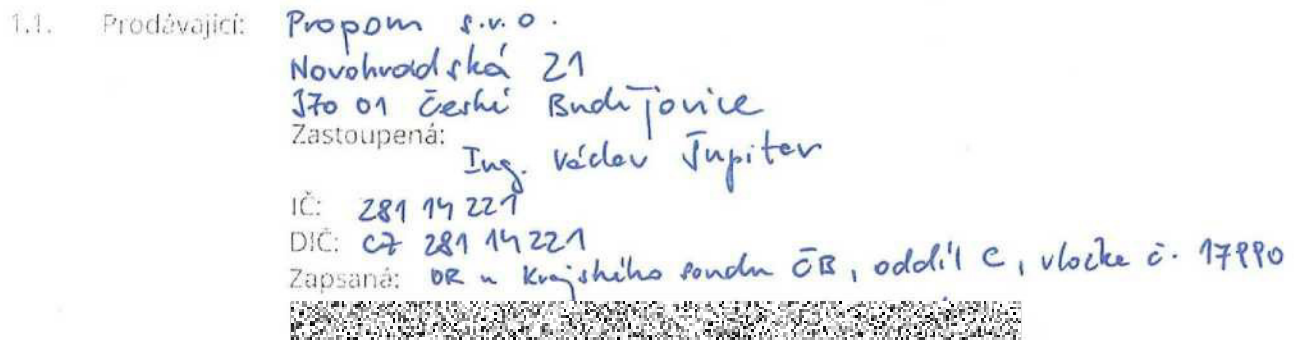 1.1. Prodávající: Propom s.r.o.
Novohradská 21
370 01 České Budějovice
Zastoupená: Ing. Václav Jupiter
IČ: 281 14 221
DIČ: CZ 281 14 221
Zapsaná: OR u Krajského soudu ČB, oddíl C, vložka č.